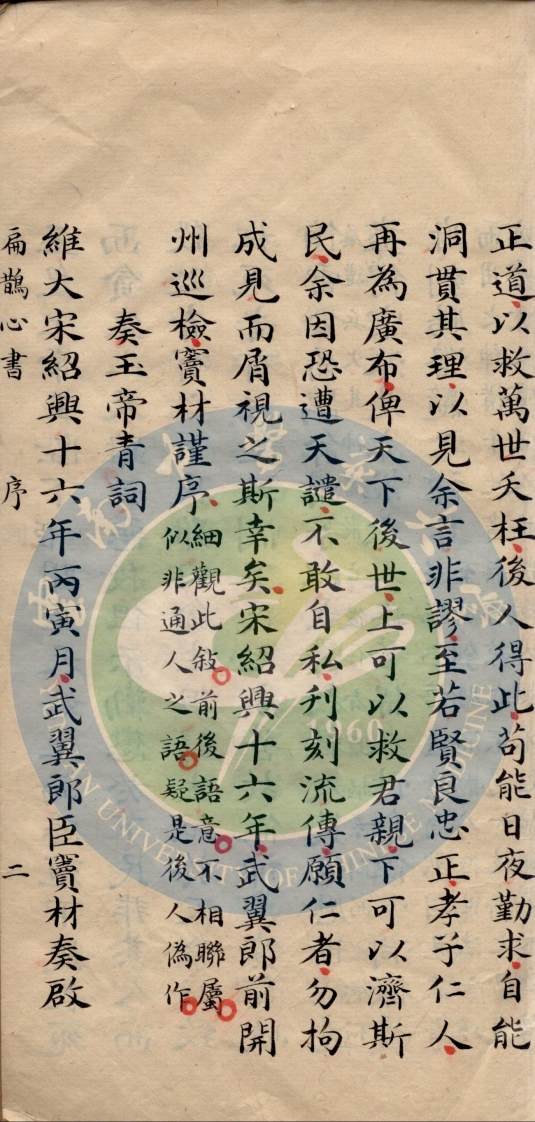 正道以救萬世夭枉後人得此苟能日夜勤求自能
洞貫其理以見余言非謬至若賢良忠正孝子仁人
再為廣布俾天下後世上可以救君親下可以濟斯
民余因恐遭天譴不敢自私刋刻流傳願仁者勿拘
成見而屑視之斯幸矣宋紹興十六年武翼郎前開
州巡檢竇材謹序
細觀此敍前後語意不相聯屬
似非通人之語疑是後人偽作
奏玉帝青詞
維大宋紹興十六年丙寅月武翼郎臣竇材奏啟
扁鵲心書 序 二
1960
UNIVERSITY OF CHINESE MEDICINE